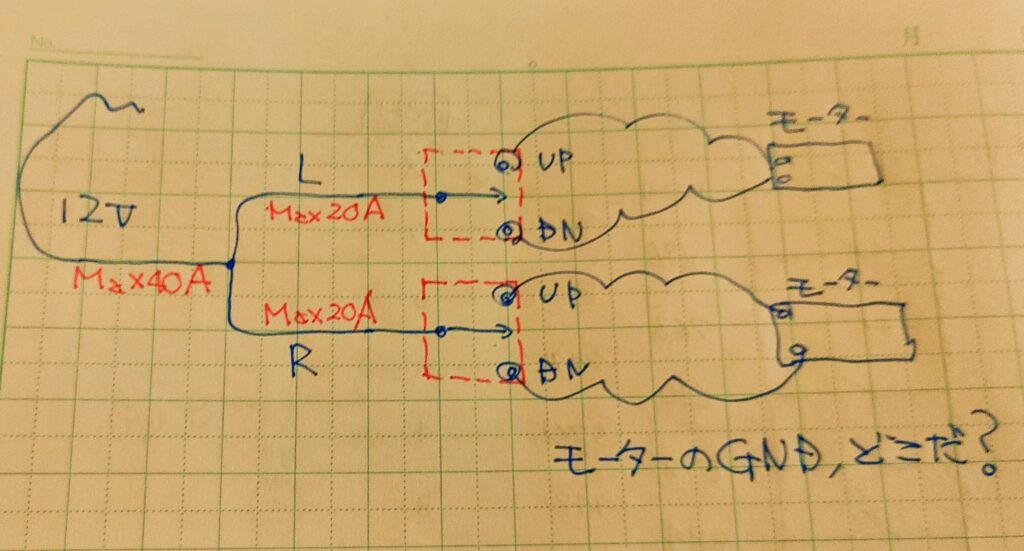 No.
月
モーター
UP
L
Max20A
12V
DN
Max40A
モーター
UP
Max20A
R
DN
モーターのGND, どこだ?